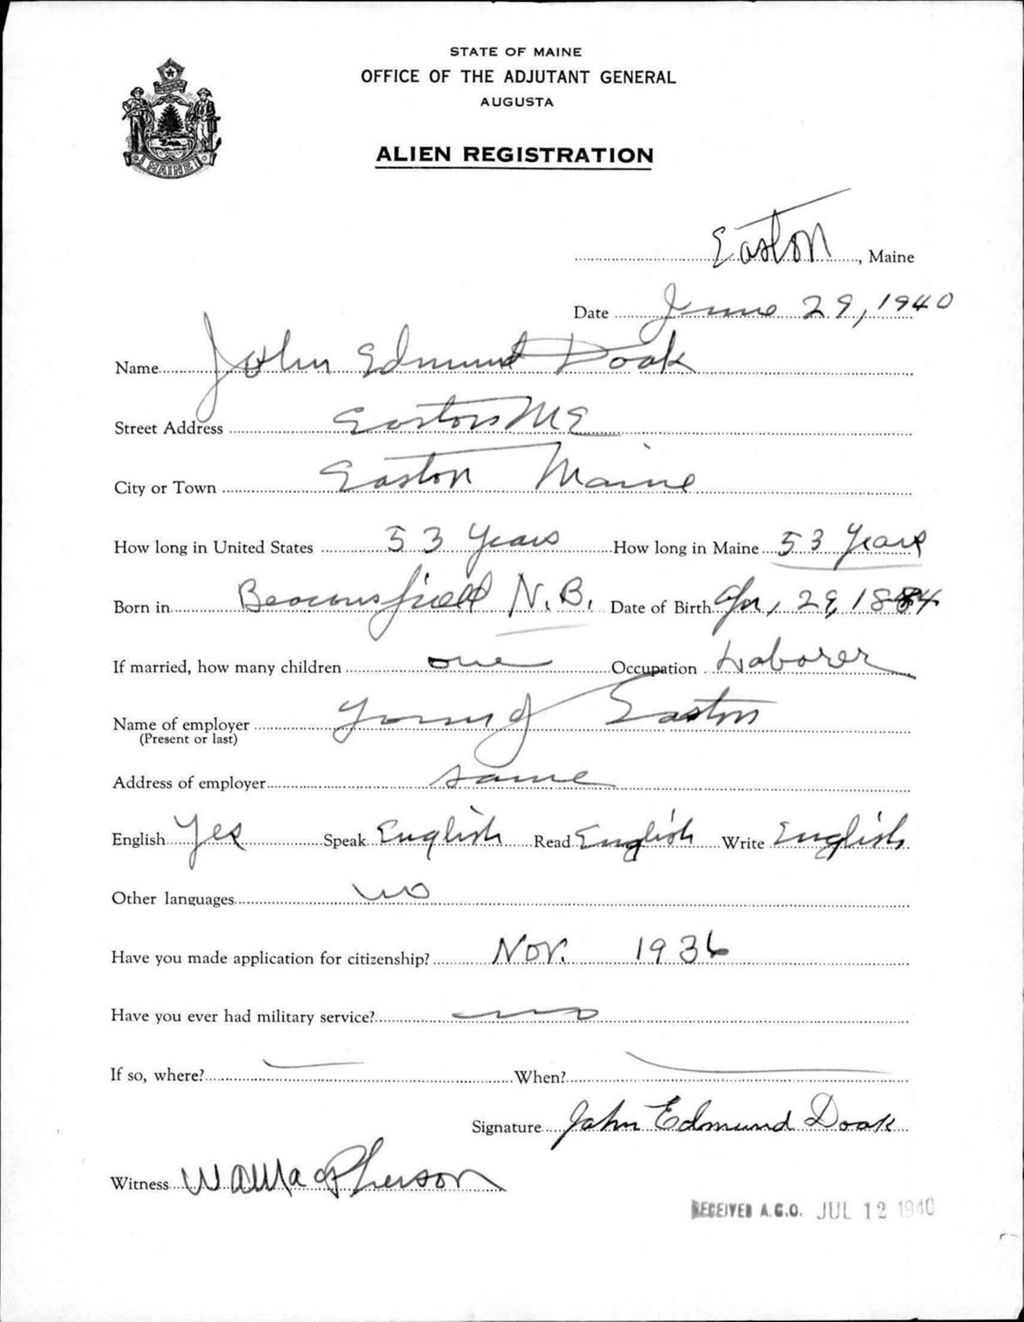 STATE OF MAINE
OFFICE OF THE ADJUTANT GENERAL
AUGUSTA
ALIEN REGISTRATION
Easton, Maine
Date June 29, 1940
Name John Edmund Doak
Street Address Easton ME
City or Town Easton Maine
How long in United States 53 Years How long in Maine 53 Years
Born in Beaconsfield N.B. Date of Birth Apr, 29, 1884
If married, how many children one Occupation Laborer
Name of employer Easton
(Present or last)
Address of employer same
English Yes Speak English Read English Write English
Other languages no
Have you made application for citizenship? Nov. 1936
Have you ever had military service? no
If so, where? When?
Signature John Edmund Doak
Witness
RECEIVED A.G.O. JUL 12 1940
MAINE